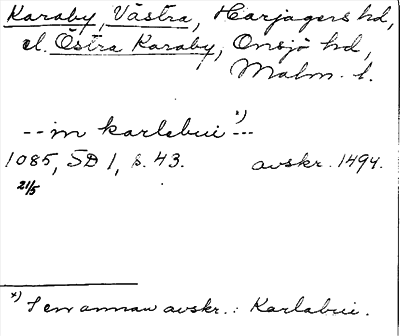 Karaby, Västra, Harjagers hd,
el. Östra Karaby, Onsjö hd,
Malm. l.
-- in karlabui *) ---
1085, SD 1, s. 43. avskr. 1494.
21/5
*) I en annan avskr.: Karlabui.